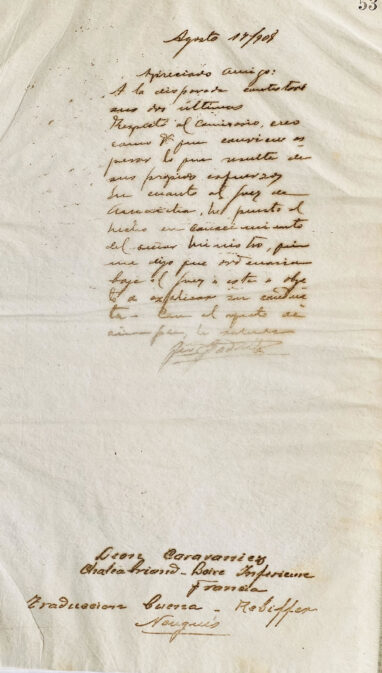 53
Agosto 17/908
Apreciado amigo:
A la disparada contesto
sus dos últimas
Respecto al Comisario, creo
como V. que conviene es-
perar lo que resulte de
sus propios esfuerzos
En cuanto al juez de
he puesto el
hecho en conocimiento
del señor Ministro, quien
me dijo que
el juez a esta a obje-
to a explicar su conduc-
ta - Con el afecto de
siempre, le saluda
Leon Caravaniez
Chateabriand - Loire Inferieure
Francia
Traduccion buena - Rebiffer
Neuquén